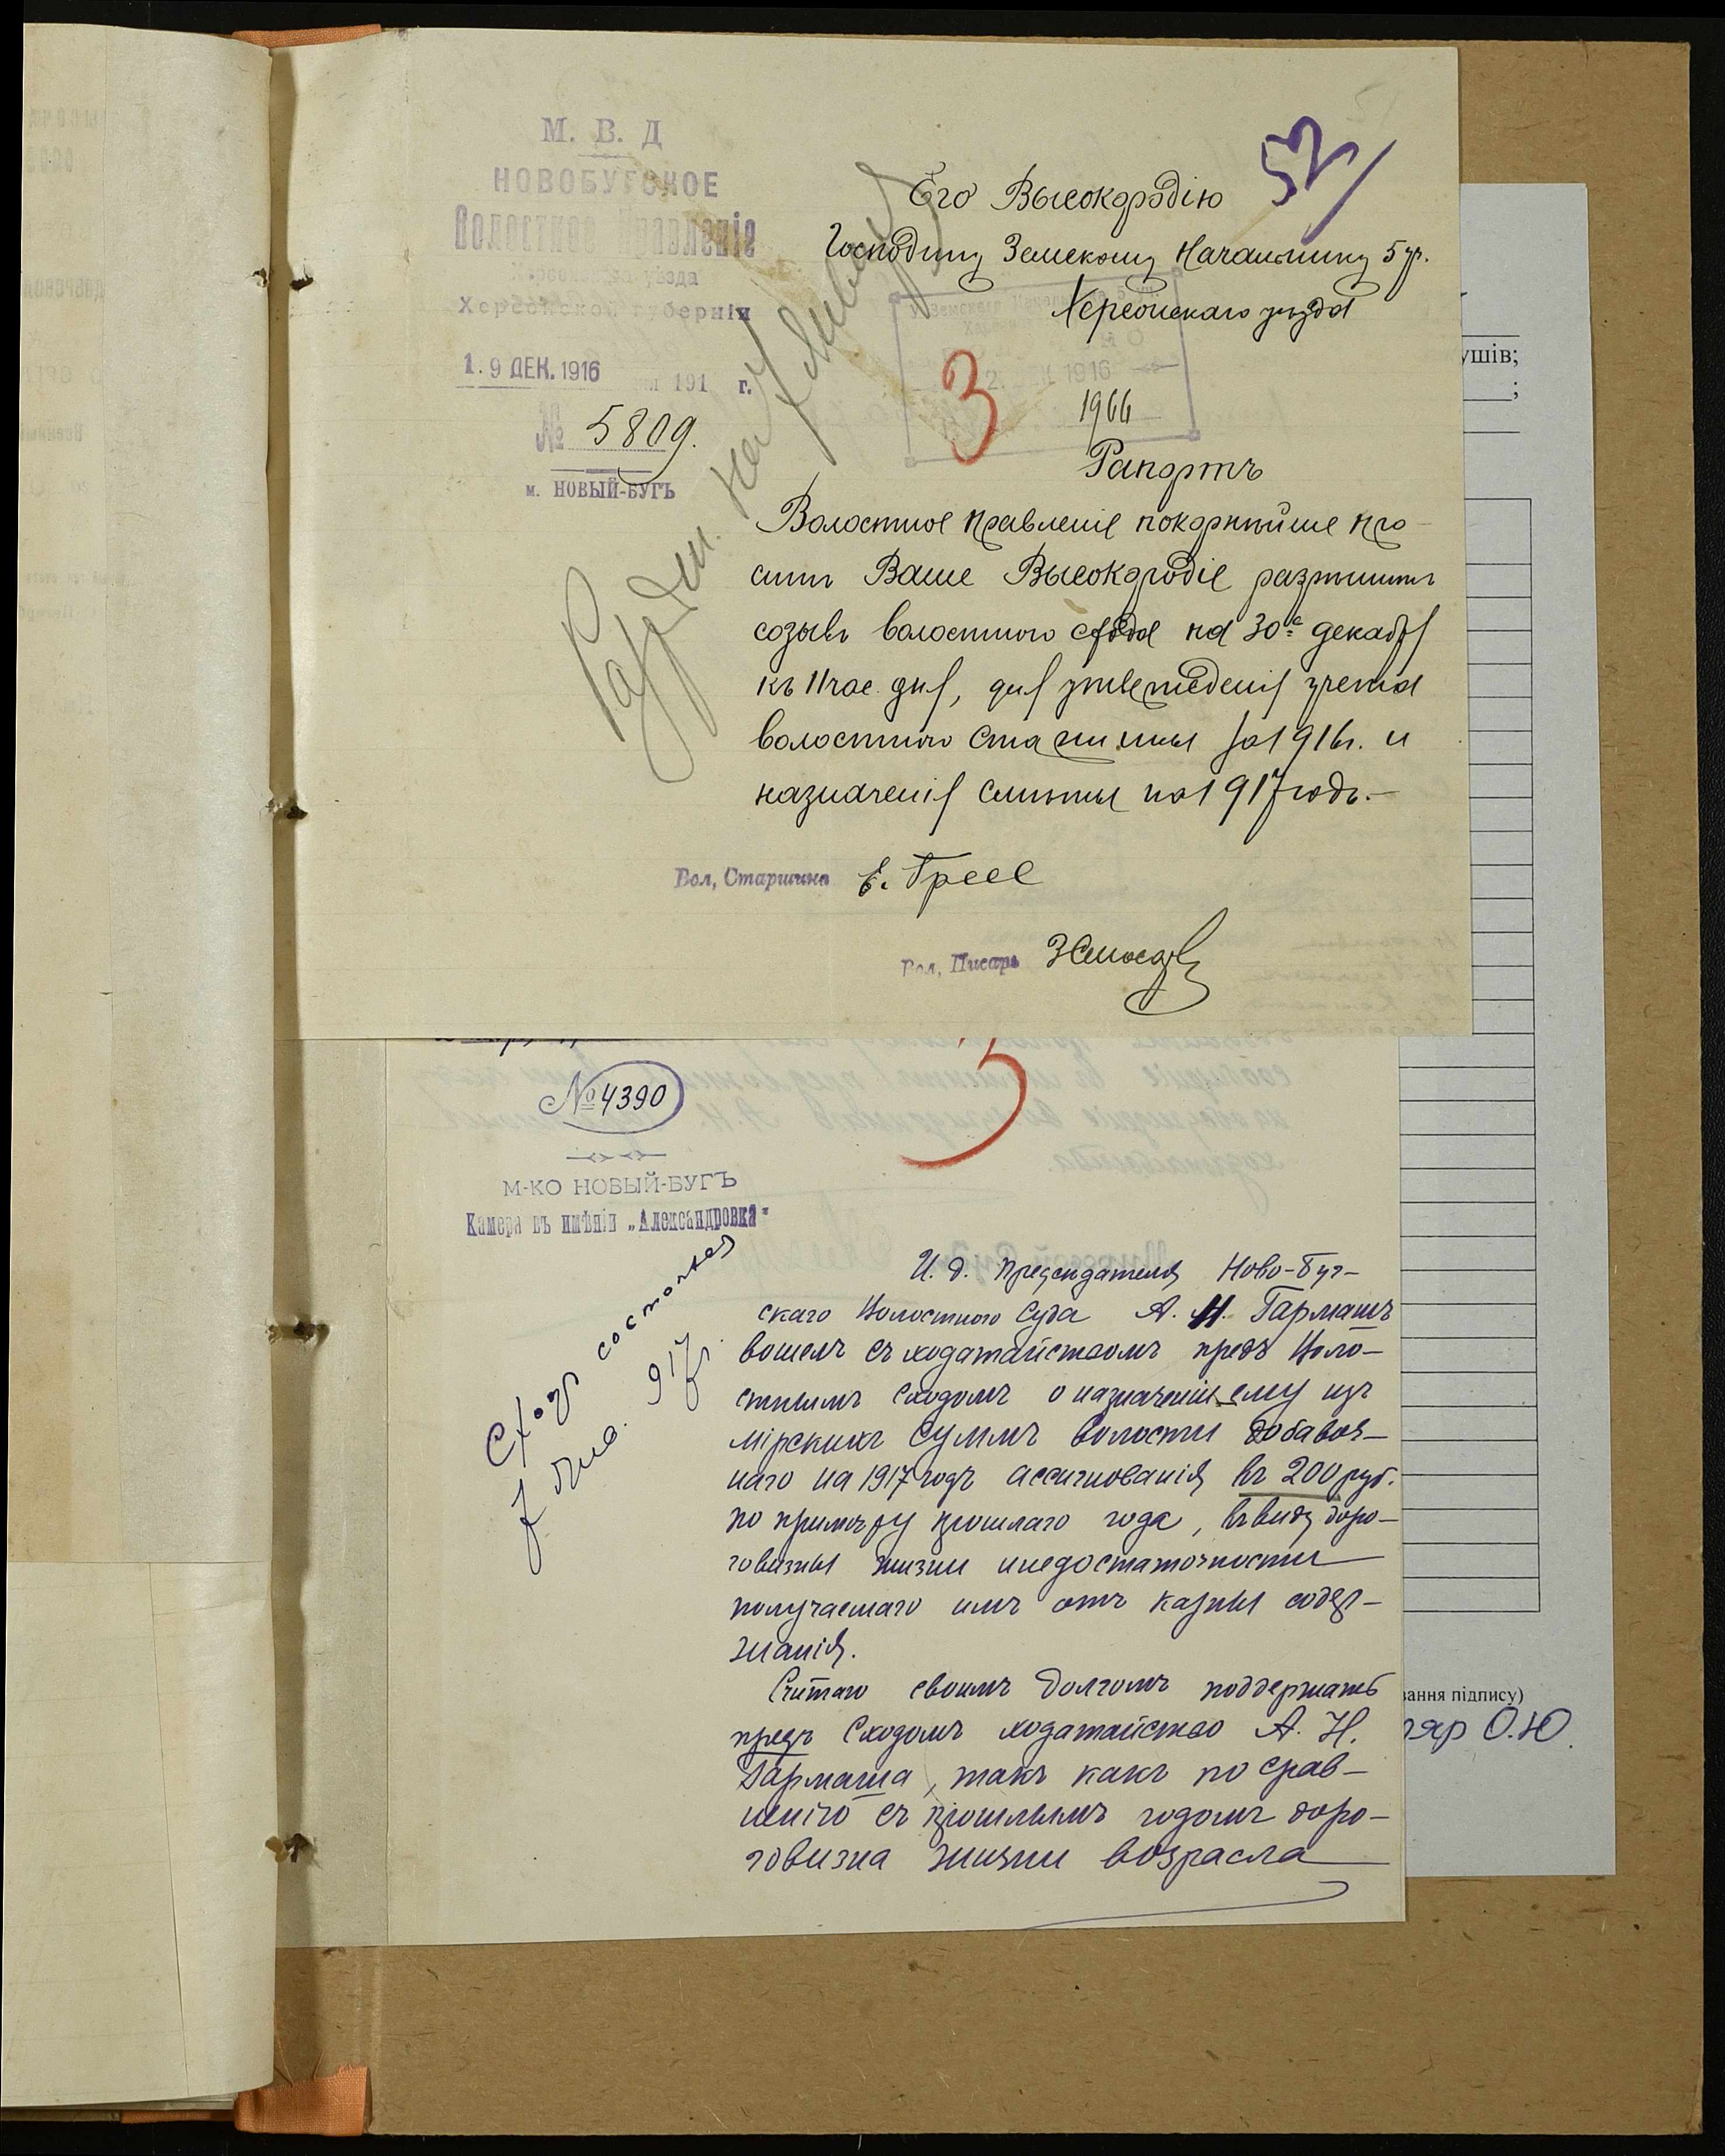 М. В. Д
НОВОБУГСКОЕ
Волостное Правленіе
Херсонскаго уѣзда
Херсонской губерніи
1.9 ДЕК. 1916
191 г.
№ 5809.
м. НОВЫЙ-БУГЪ
52
Его Высокородію
Господину Земскому Начальнику 5 уч.
Херсонскаго уѣзда
Земскаго Начальника
1916
3
1966
Рапортъ
Волостное правленіе покорнѣйше про-
ситъ Ваше Высокородіе разрѣшить
созывъ волостного схода на 30е декабря
къ 11 час. дня, для утвержденія учета
волостного старшины за 1916 г. и
назначенія смѣты на 1917 годъ.—
Вол. Старшина
Вол. Писарь
№ 4390
М-КО НОВЫЙ-БУГЪ
Камера въ имѣніи „Александровка"
Сходъ состоялся
917
И. д. Предсѣдателя Ново-Буг-
скаго Волостного Суда А. Н. Гармашъ
вошелъ съ ходатайствомъ предъ Воло-
стнымъ Сходомъ о назначеніи ему изъ
мірскихъ суммъ волости добавоч-
наго на 1917 годъ ассигнованія въ 200 руб.
по примѣру прошлаго года, въ виду доро-
говизны жизни и недостаточности
получаемаго имъ отъ казны содер-
жанія.
Считаю своимъ долгомъ поддержать
предъ Сходомъ ходатайство А. Н.
Гармаша, такъ какъ по срав-
ненію съ прошлымъ годомъ доро-
говизна жизни возрасла
ушів;
;
вання підпису)
ляр О.Ю.